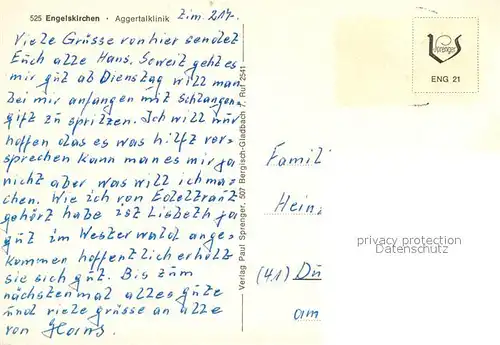 525 Engelskirchen · Aggertalklinik Zim. 217.
Viele Grüsse von hier sendet
Euch alle Hans. Soweit geht es
mir gut ab Dienstag will man
bei mir anfangen mit Schlangen
gift zu spritzen. Ich will nur
hoffen das es was hilft ver-
sprechen kann man es mir ja
nicht aber was will ich ma-
chen. Wie ich von Edeltraut
gehört habe ist Lisbeth ja
gut im Westerwald ange-
kommen hoffentlich erholt
sie sich gut. Bis zum
nächstenmal alles gute
und viele grüsse an alle
von Hans.
Verlag Paul Sprenger, 507 Bergisch-Gladbach 7, Ruf 2541
Sprenger
ENG 21
Famili
Hein
(41) Du
am
privacy protection
Datenschutz